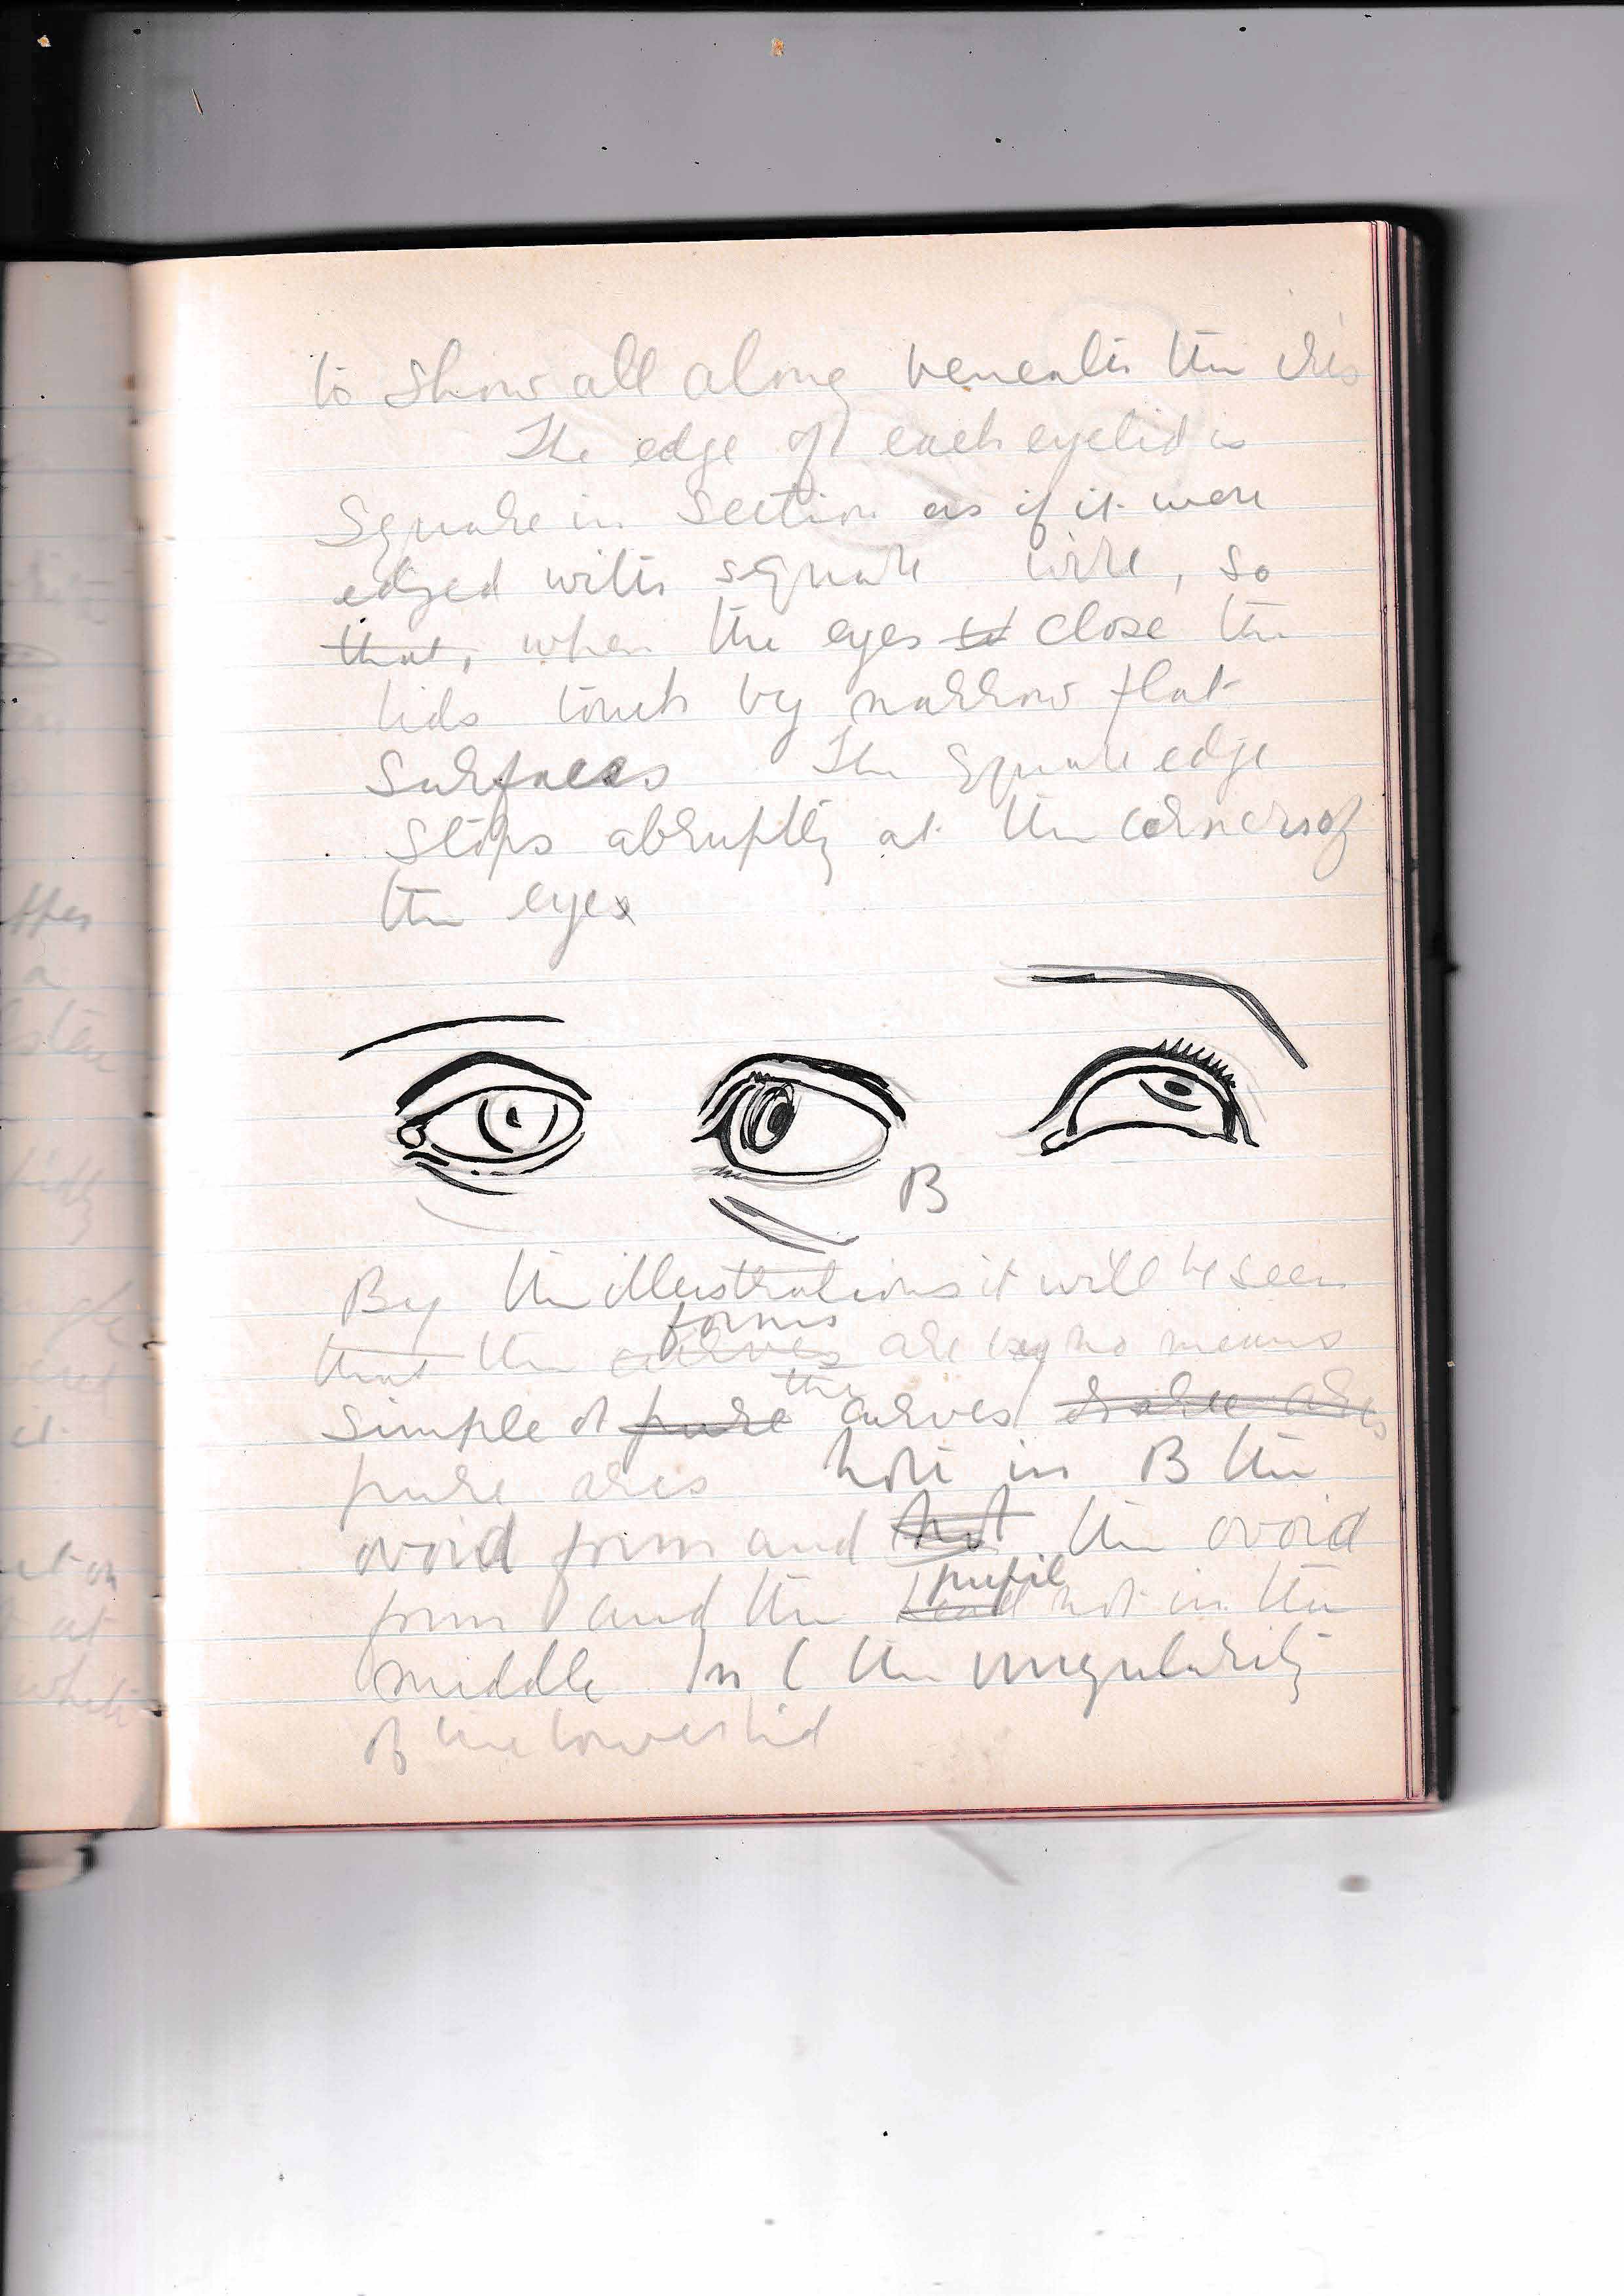 to show all along beneath the iris
The edge of each eyelid is
square in section as if it were
edged with square wire, so
that, when the eyes close the
lids touch by narrow flat
surfaces The square edge
stops abruptly at the corners of
the eyes
B
By the illustrations it will be seen
forms
that the curves are by no means
the
simple or pure curves
pure arcs note in B the
ovoid form and the ovoid
pupil
form and the not in the
middle In C the irregularity
of the lower lid